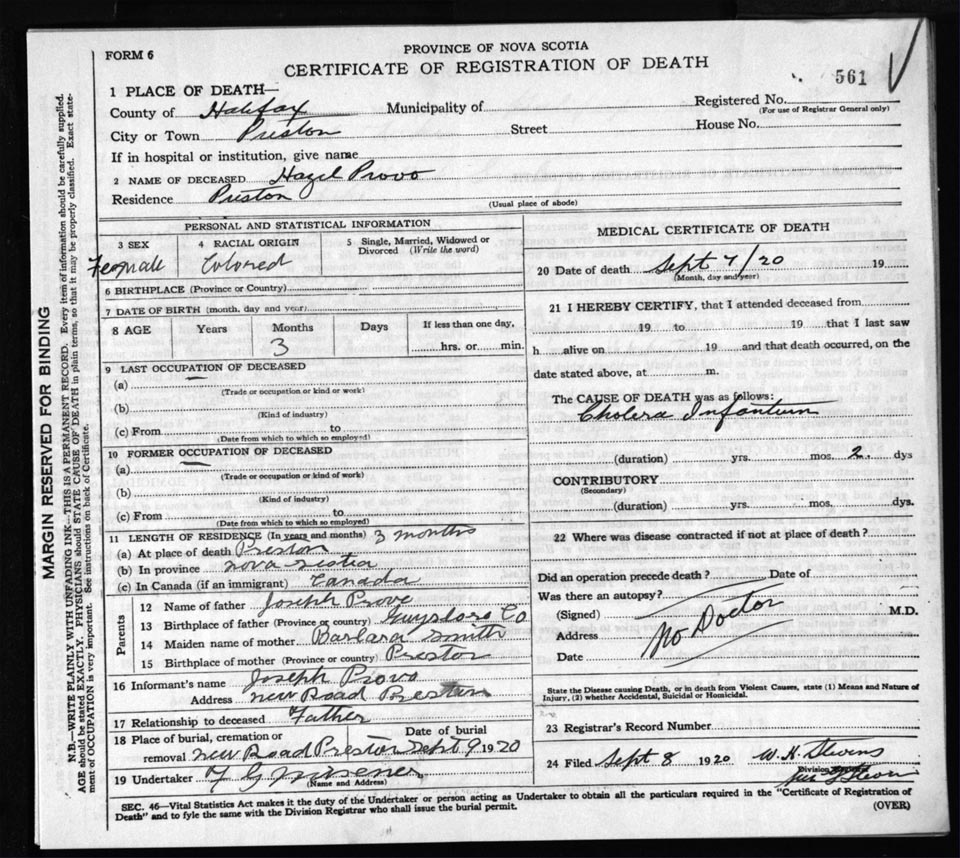 FORM 6
PROVINCE OF NOVA SCOTIA
CERTIFICATE OF REGISTRATION OF DEATH
561
1 PLACE OF DEATH—
County of Halifax Municipality of Registered No.
(For use of Registrar General only)
City or Town Preston Street House No.
If in hospital or institution, give name
2 NAME OF DECEASED Hazel Provo
Residence Preston
(Usual place of abode)
PERSONAL AND STATISTICAL INFORMATION
3 SEX 4 RACIAL ORIGIN 5 Single, Married, Widowed or Divorced (Write the word)
Female Colored
6 BIRTHPLACE (Province or Country)
7 DATE OF BIRTH (month, day and year)
8 AGE Years Months Days If less than one day,
3 hrs. or min.
9 LAST OCCUPATION OF DECEASED
(a)
(Trade or occupation or kind or work)
(b)
(Kind of industry)
(c) From to
(Date from which to which so employed)
10 FORMER OCCUPATION OF DECEASED
(a)
(Trade or occupation or kind of work)
(b)
(Kind of industry)
(c) From to
(Date from which to which so employed)
11 LENGTH OF RESIDENCE (In years and months) 3 months
(a) At place of death Preston
(b) In province Nova Scotia
(c) In Canada (if an immigrant) Canada
Parents
12 Name of father Joseph Provo
13 Birthplace of father (Province or country) Guysboro Co
14 Maiden name of mother Barbara Smith
15 Birthplace of mother (Province or country) Preston
16 Informant's name Joseph Provo
Address New Road Preston
17 Relationship to deceased Father
18 Place of burial, cremation or Date of burial
removal New Road Preston Sept 9 1920
19 Undertaker
(Name and Address)
MEDICAL CERTIFICATE OF DEATH
20 Date of death Sept 7/20 19
(Month, day and year)
21 I HEREBY CERTIFY, that I attended deceased from
19 to 19 that I last saw
h alive on 19 and that death occurred, on the
date stated above, at m.
The CAUSE OF DEATH was as follows:
Cholera Infantum
(duration) yrs. mos. 2 dys
CONTRIBUTORY
(Secondary)
(duration) yrs. mos. dys.
22 Where was disease contracted if not at place of death?
Did an operation precede death? Date of
Was there an autopsy?
(Signed) M.D.
No Doctor
Address
Date
State the Disease causing Death, or in death from Violent Causes, state (1) Means and Nature of
Injury, (2) whether Accidental, Suicidal or Homicidal.
23 Registrar's Record Number
24 Filed Sept 8 1920 W. H. Stevens
Division Registrar
SEC. 46—Vital Statistics Act makes it the duty of the Undertaker or person acting as Undertaker to obtain all the particulars required in the "Certificate of Registration of
Death" and to fyle the same with the Division Registrar who shall issue the burial permit.
(OVER)
MARGIN RESERVED FOR BINDING
N.B.—WRITE PLAINLY WITH UNFADING INK—THIS IS A PERMANENT RECORD. Every item of information should be carefully supplied.
AGE should be stated EXACTLY. PHYSICIANS should STATE CAUSE OF DEATH in plain terms, so that it may be properly classified. Exact state-
ment of OCCUPATION is very important. See instructions on back of Certificate.